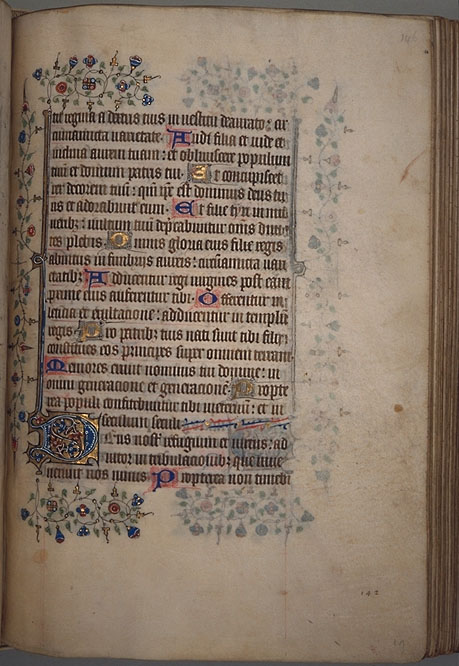 tit regina a dextris tuis in vestitu deaurato: cir
cumamicta varietate. Audi filia et vide et
inclina aurem tuam: et obliviscere populum
tuū et domum patris tui. Et concupiscet
rex decorem tuū: qm̄ ipse est dominus deus tu
us et adorabunt eum. Et filie tyri in mune
ribꝫ: vultum tuū dep̄cabuntur om̄s divi
tes plebis. Omnis gloria eius filie regis
ab intus in fimbrijs aureis: circūamicta vari
etatibꝫ. Adducentur regi virgines post eam
proxime eius afferentur tibi. Offerentur in
leticia et exultatione: adducentur in templū
regis. Pro patribꝫ tuis nati sunt tibi filij:
constitues eos principes super omnem terram
Memores erunt nominis tui domine: in
omni generacione et generacionē. Propte
rea populi confitebuntur tibi in eternū: et in
seculum seculi
Deus nost̄ refugium et virtus: ad
iutor in tribulacionibꝫ que inve
nerunt nos nimis Propterea non timebi
142